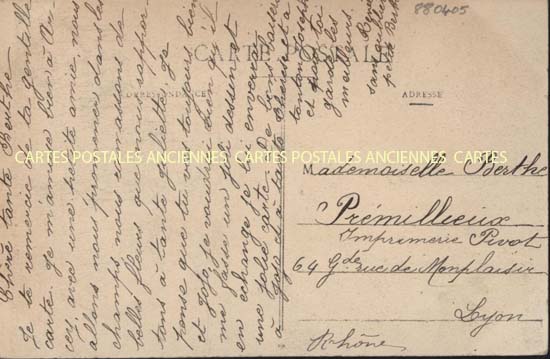 880405
CARTE POSTALE
CORRESPONDANCE
ADRESSE
CARTES POSTALES ANCIENNES CARTES POSTALES ANCIENNES CARTES POSTALES ANCIENNES
Chère tante Berthe
Je te remercie de ta gentille
carte. Je m'amuse bien à
ccey, avec une petite amie, nous
allons nous promener dans les
champs nous ramassons de
belles fleurs que nous rappor-
tons à tante Juliette. Je
pense que tu vas toujours bien
et Jojo, je voudrais bien qu'il
me fasse un joli dessin et
en échange je lui enverrai
une jolie carte. De bons baisers
à Jojo et à tante Thérèse et à
tonton Joseph
et pour toi
garde les
meilleurs
petite Berthe
Mademoiselle Berthe
Prémillieux
Imprimerie Pivot
64 Gde rue de Monplaisir
Lyon
Rhône